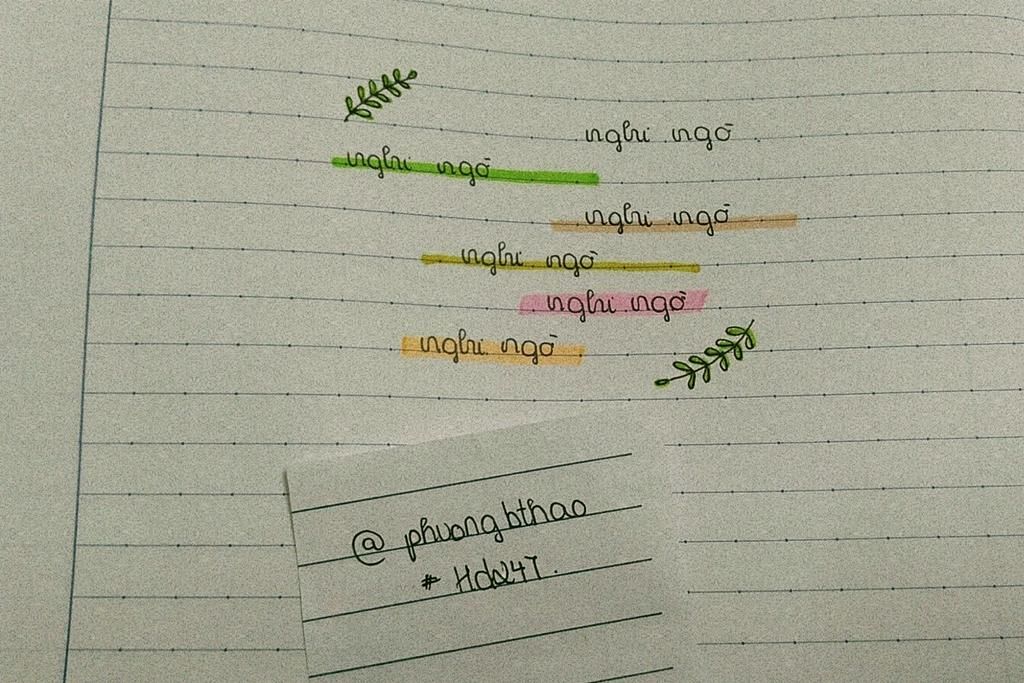 nghi ngờ
nghi ngờ
nghi ngờ
nghi ngờ
nghi ngờ
nghi ngờ
@ phuongbthao
# Hdq247.